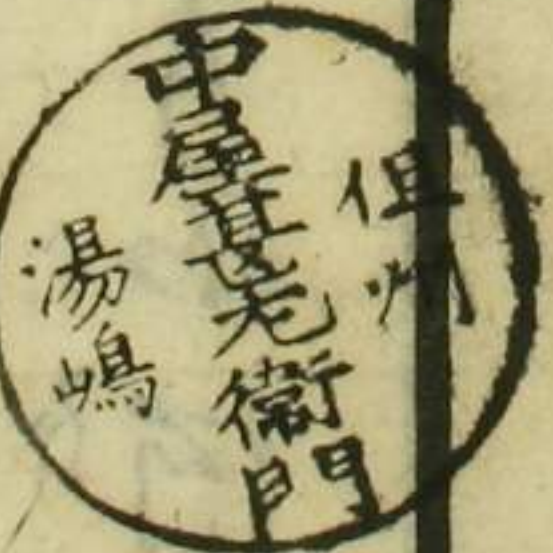 但州
中屋甚左衛門
湯嶋